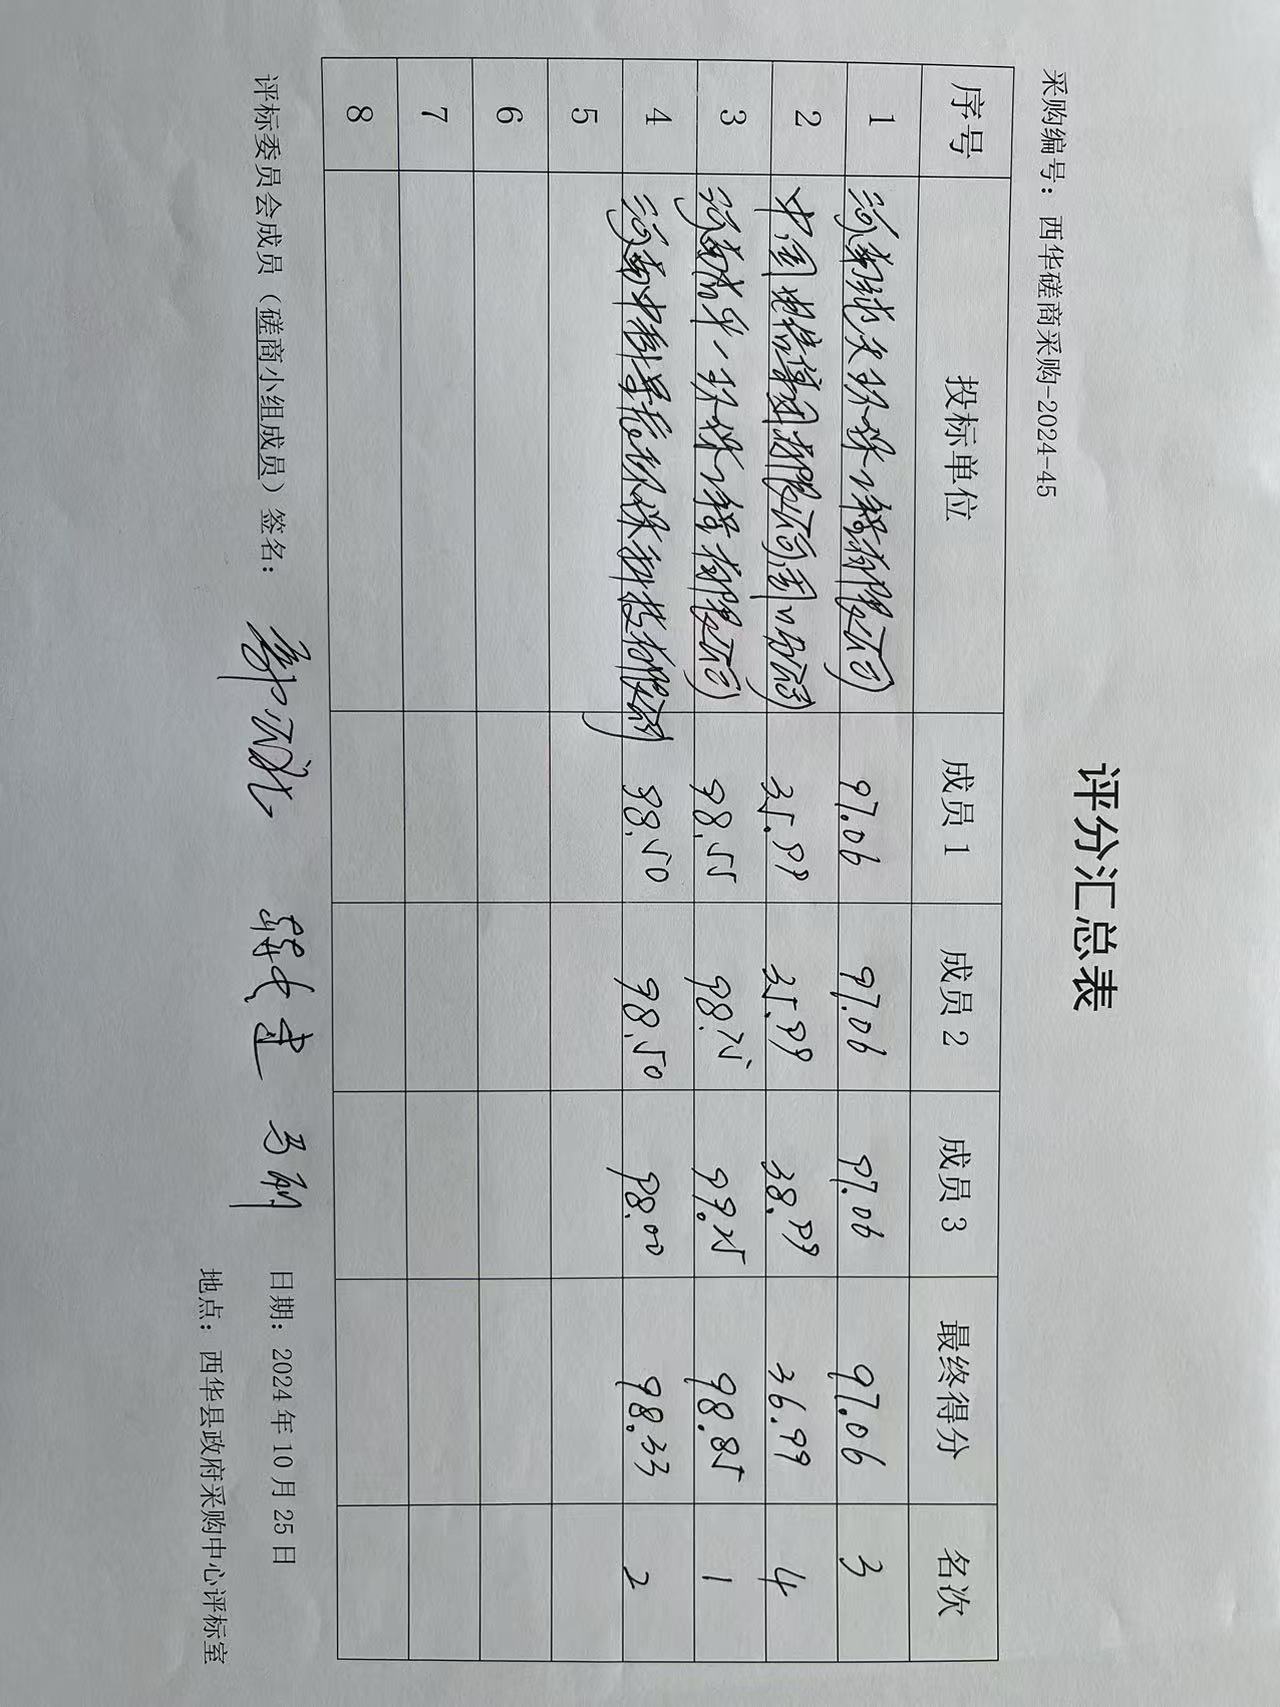 评分汇总表
采购编号：西华磋商采购-2024-45
序号 投标单位 成员1 成员2 成员3 最终得分 名次
1 河南 环保工程有限公司 97.06 97.06 97.06 97.06 3
2 中国 集团有限公司周口分公司 35.99 35.99 38.99 36.99 4
3 河南 一环保工程有限公司 98.55 98.75 99.25 98.85 1
4 河南中 环保科技有限公司 98.50 98.50 98.00 98.33 2
5
6
7
8
评标委员会成员（磋商小组成员）签名： 日期：2024年10月25日
地点：西华县政府采购中心评标室